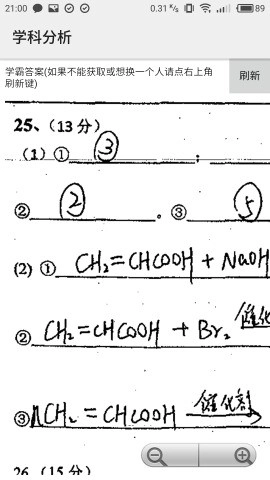 21:00 0.31 K/s 89
学科分析
学霸答案(如果不能获取或想换一个人请点右上角刷新键)
刷新
25、(13 分)
(1) ① ③ ;
② ② 。 ③ ⑤
(2) ① CH₂=CHCOOH + NaOH
② CH₂=CHCOOH + Br₂ 催化
③ nCH₂=CHCOOH 催化剂
26. (15 分)